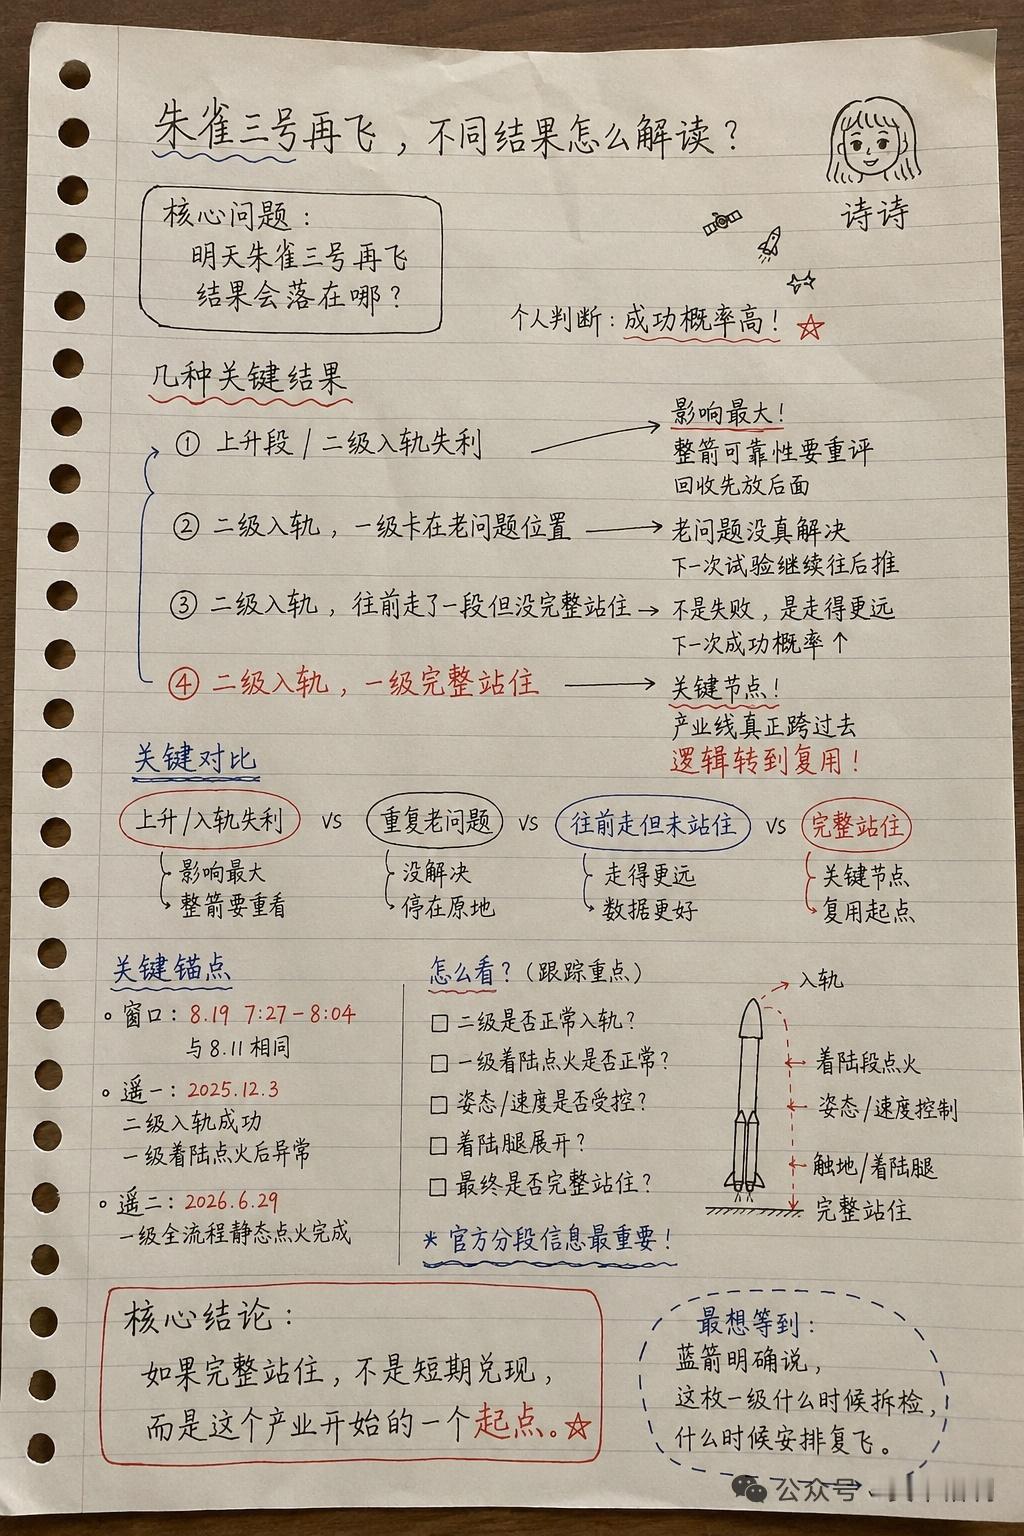 朱雀三号再飞，不同结果怎么解读？
诗诗
核心问题：
明天朱雀三号再飞
结果会落在哪？
个人判断：成功概率高！
几种关键结果
① 上升段 / 二级入轨失利
影响最大！
整箭可靠性要重评
回收先放后面
② 二级入轨，一级卡在老问题位置
老问题没真解决
下一次试验继续往后推
③ 二级入轨，往前走了一段但没完整站住
不是失败，是走得更远
下一次成功概率↑
④ 二级入轨，一级完整站住
关键节点！
产业线真正跨过去
逻辑转到复用！
关键对比
上升/入轨失利 VS 重复老问题 VS 往前走但未站住 VS 完整站住
影响最大
整箭要重看
没解决
停在原地
走得更远
数据更好
关键节点
复用起点
关键锚点
窗口：8.19 7:27-8:04
与8.11相同
遥一：2025.12.3
二级入轨成功
一级着陆点火后异常
遥二：2026.6.29
一级全流程静态点火完成
怎么看？（跟踪重点）
□ 二级是否正常入轨？
□ 一级着陆点火是否正常？
□ 姿态/速度是否受控？
□ 着陆腿展开？
□ 最终是否完整站住？
* 官方分段信息最重要！
入轨
着陆段点火
姿态/速度控制
触地/着陆腿
完整站住
核心结论：
如果完整站住，不是短期兑现，
而是这个产业开始的一个起点。
最想等到：
蓝箭明确说，
这枚一级什么时候拆检，
什么时候安排复飞。
公众号